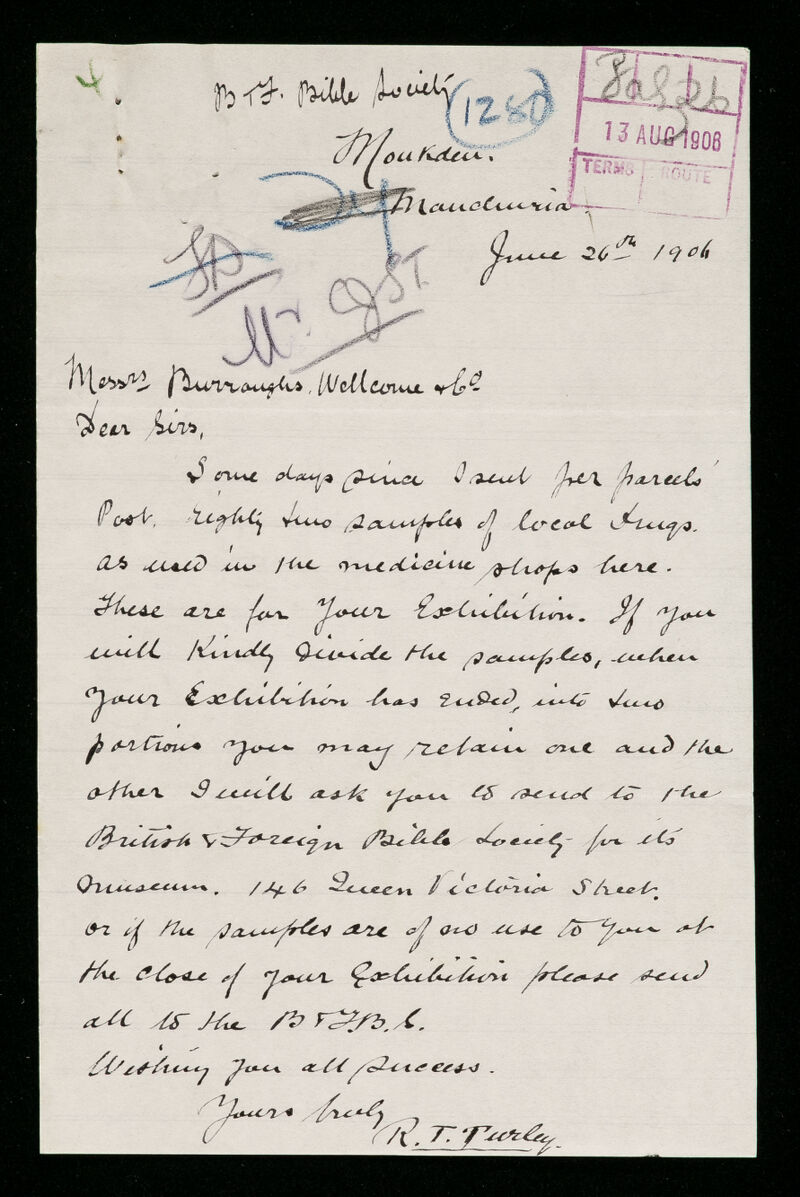 B & F. Bible Society
1280
13 AUG 1906
TERMS ROUTE
Moukden.
Manchuria.
June 26th 1906
Mr. JST.
Messrs Burroughs, Wellcome & Co
Dear Sirs,
Some days since I sent per parcels
Post. Eighty two samples of local drugs.
as used in the medicine shops here.
These are for Your Exhibition. If you
will Kindly divide the samples, when
your Exhibition has ended, into two
portions you may retain one and the
other I will ask you to send to the
British & Foreign Bible Society for its
museum. 146 Queen Victoria Street.
or if the samples are of no use to you at
the close of your Exhibition please send
all to the B & F.B.S.
Wishing you all success.
Yours truly
R. T. Turley.